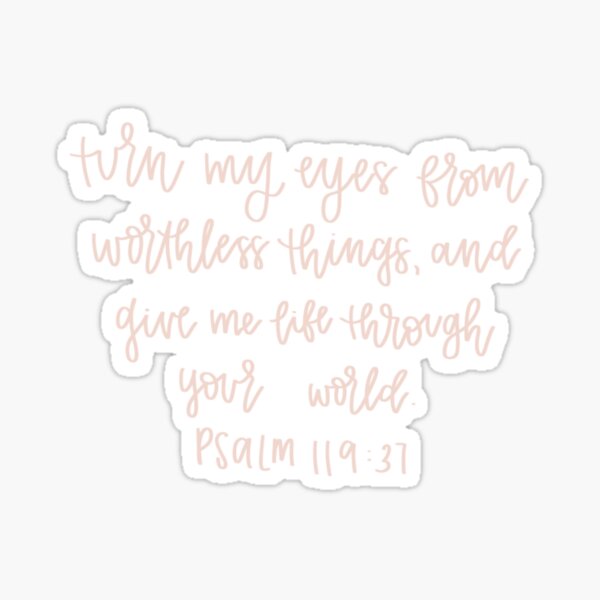 turn my eyes from
worthless things, and
give me life through
your world.
PSALM 119:37